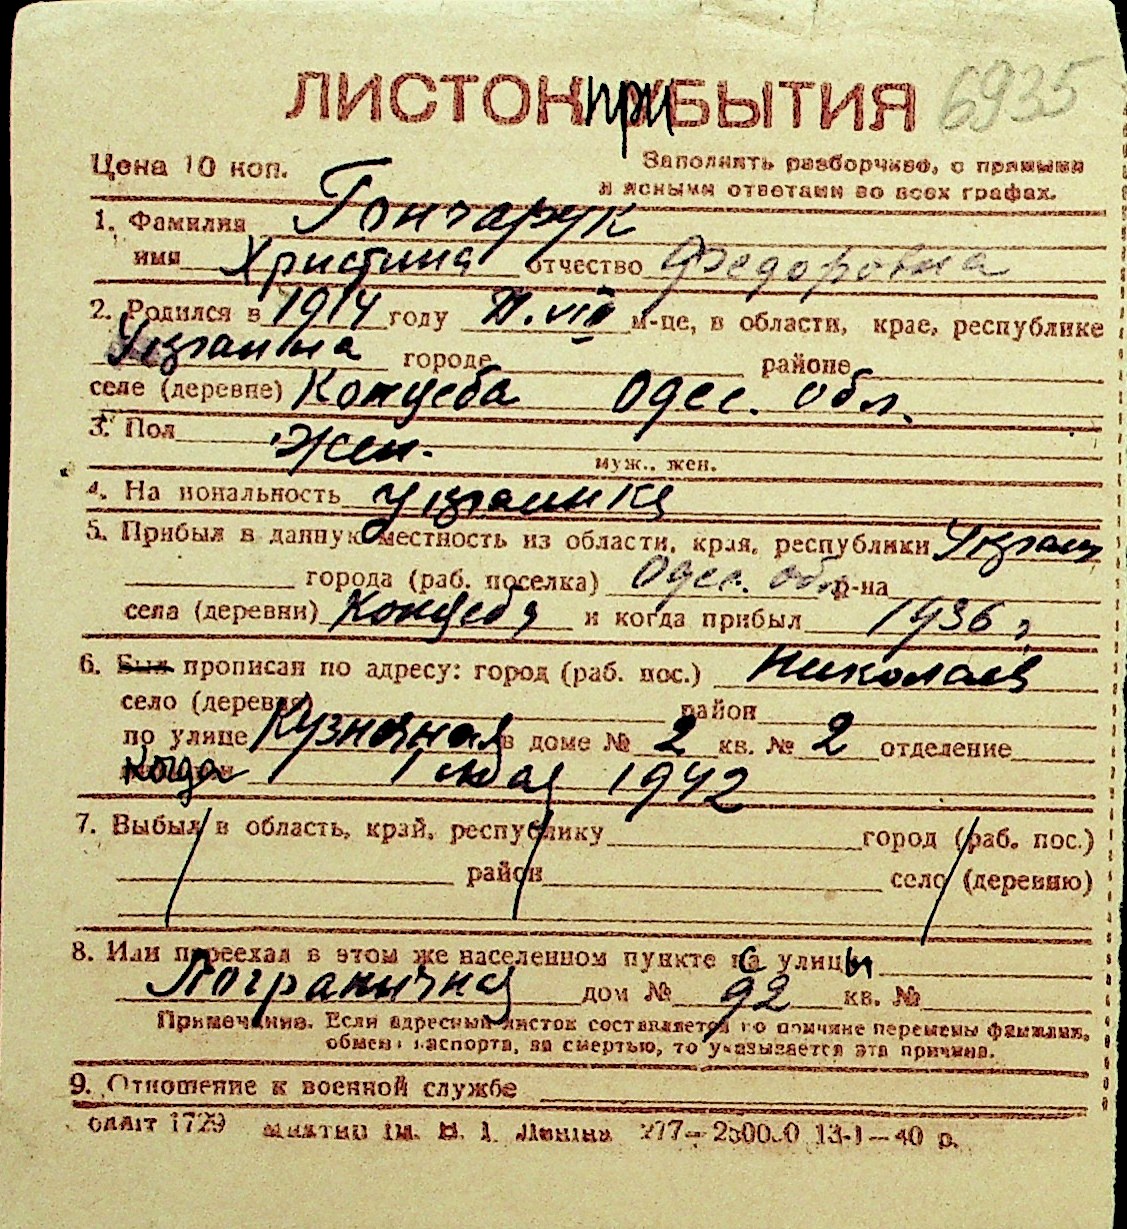 ЛИСТОК прибытия 6935
Цена 10 коп. Заполнять разборчиво, с прямыми
и ясными ответами во всех графах.
1. Фамилия Гончарук
имя Христина отчество Федоровна
2. Родился в 1914 году м-це, в области, крае, республике
Украина городе районе
селе (деревне) Коцюба Одес. обл.
3. Пол Жен.
муж., жен.
4. Национальность украинка
5. Прибыл в данную местность из области, края, республики Украин
города (раб. поселка) Одес. обл. р-на
села (деревни) Коцюба и когда прибыл 1936 г.
6. Был прописан по адресу: город (раб. пос.) Николаев
село (деревня) район
по улице Кузнечная в доме № 2 кв. № 2 отделение
Когда 1 мая 1942
7. Выбыл в область, край, республику город (раб. пос.)
район село (деревню)
8. Или переехал в этом же населенном пункте с улицы
Пограничная дом № 92 кв. №
Примечание. Если адресный листок составляется по причине перемены фамилии,
обмена паспорта, за смертью, то указывается эта причина.
9. Отношение к военной службе
1729 ім. В. І. Леніна 13-І—40 р.